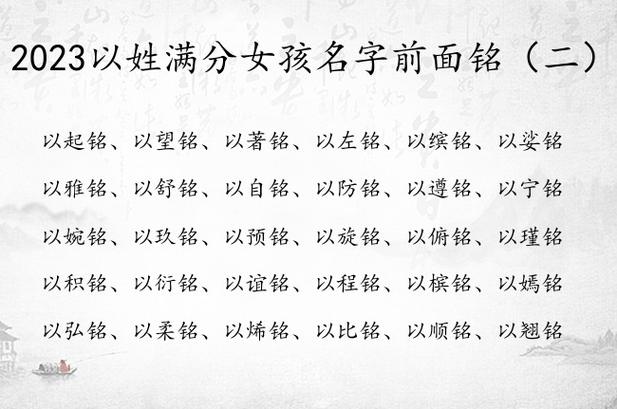 2023以姓满分女孩名字前面铭（二）
以起铭、以望铭、以著铭、以左铭、以缤铭、以娑铭
以雅铭、以舒铭、以自铭、以防铭、以遵铭、以宁铭
以婉铭、以玖铭、以预铭、以旋铭、以俯铭、以瑾铭
以积铭、以衍铭、以谊铭、以程铭、以槟铭、以嫣铭
以弘铭、以柔铭、以烯铭、以比铭、以顺铭、以翘铭